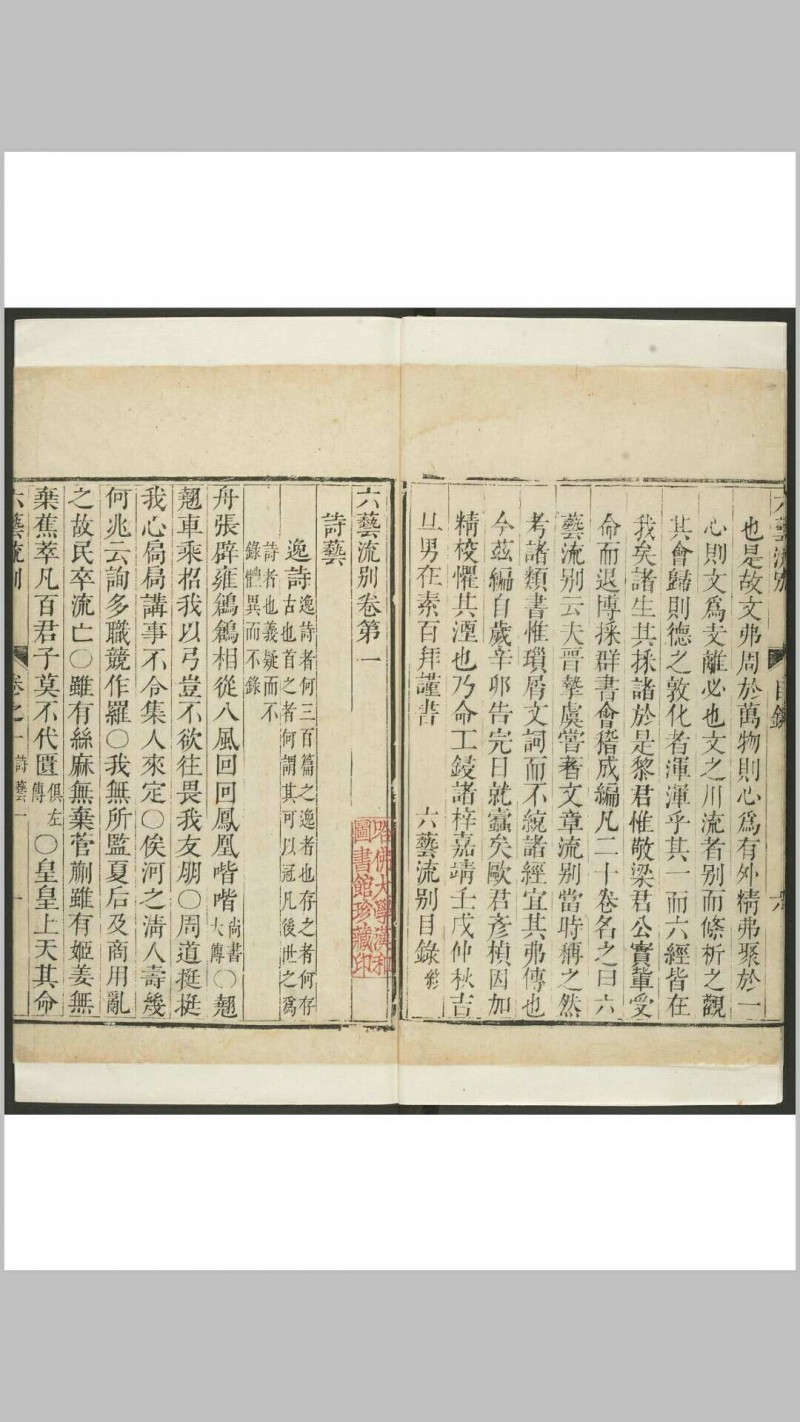 也是故文弗周於萬物則心爲有外精弗聚於一
心則文爲支離必也文之川流者別而條析之觀
其會歸則德之敦化者渾渾乎其一而六經皆在
我矣諸生其採諸於是黎君惟敬梁君公實軰受
命而退博採群書會稽成編凡二十卷名之曰六
藝流別云夫晋摯虞嘗著文章流別當時稱之然
考諸類書惟瑣屑文詞而不統諸經宜其弗傳也
今茲編自歲辛卯告完日就蠧矣歐君彥楨因加
精校懼其湮也乃命工鋟諸梓嘉靖壬戌仲秋吉
旦男在素百拜謹書
六藝流別目錄
六藝流別卷第一
哈佛大學漢和
圖書館珍藏印
詩藝
逸詩
逸詩者何三百篇之逸者也存之者何存
古也首之者何謂其可以冠凡後世之爲
詩者也義疑而不
錄體異而不錄
舟張辟雍鶬鶬相從八風回回鳳凰喈喈尚書大傳○翹
翹車乘招我以弓豈不欲往畏我友朋○周道挺挺
我心扃扃講事不令集人來定○俟河之淸人壽幾
何兆云詢多職競作羅○我無所監夏后及商用亂
之故民卒流亡○雖有絲麻無棄菅蒯雖有姬姜無
棄蕉萃凡百君子莫不代匱俱左傳○皇皇上天其命
六藝流別
卷之一
詩藝
一